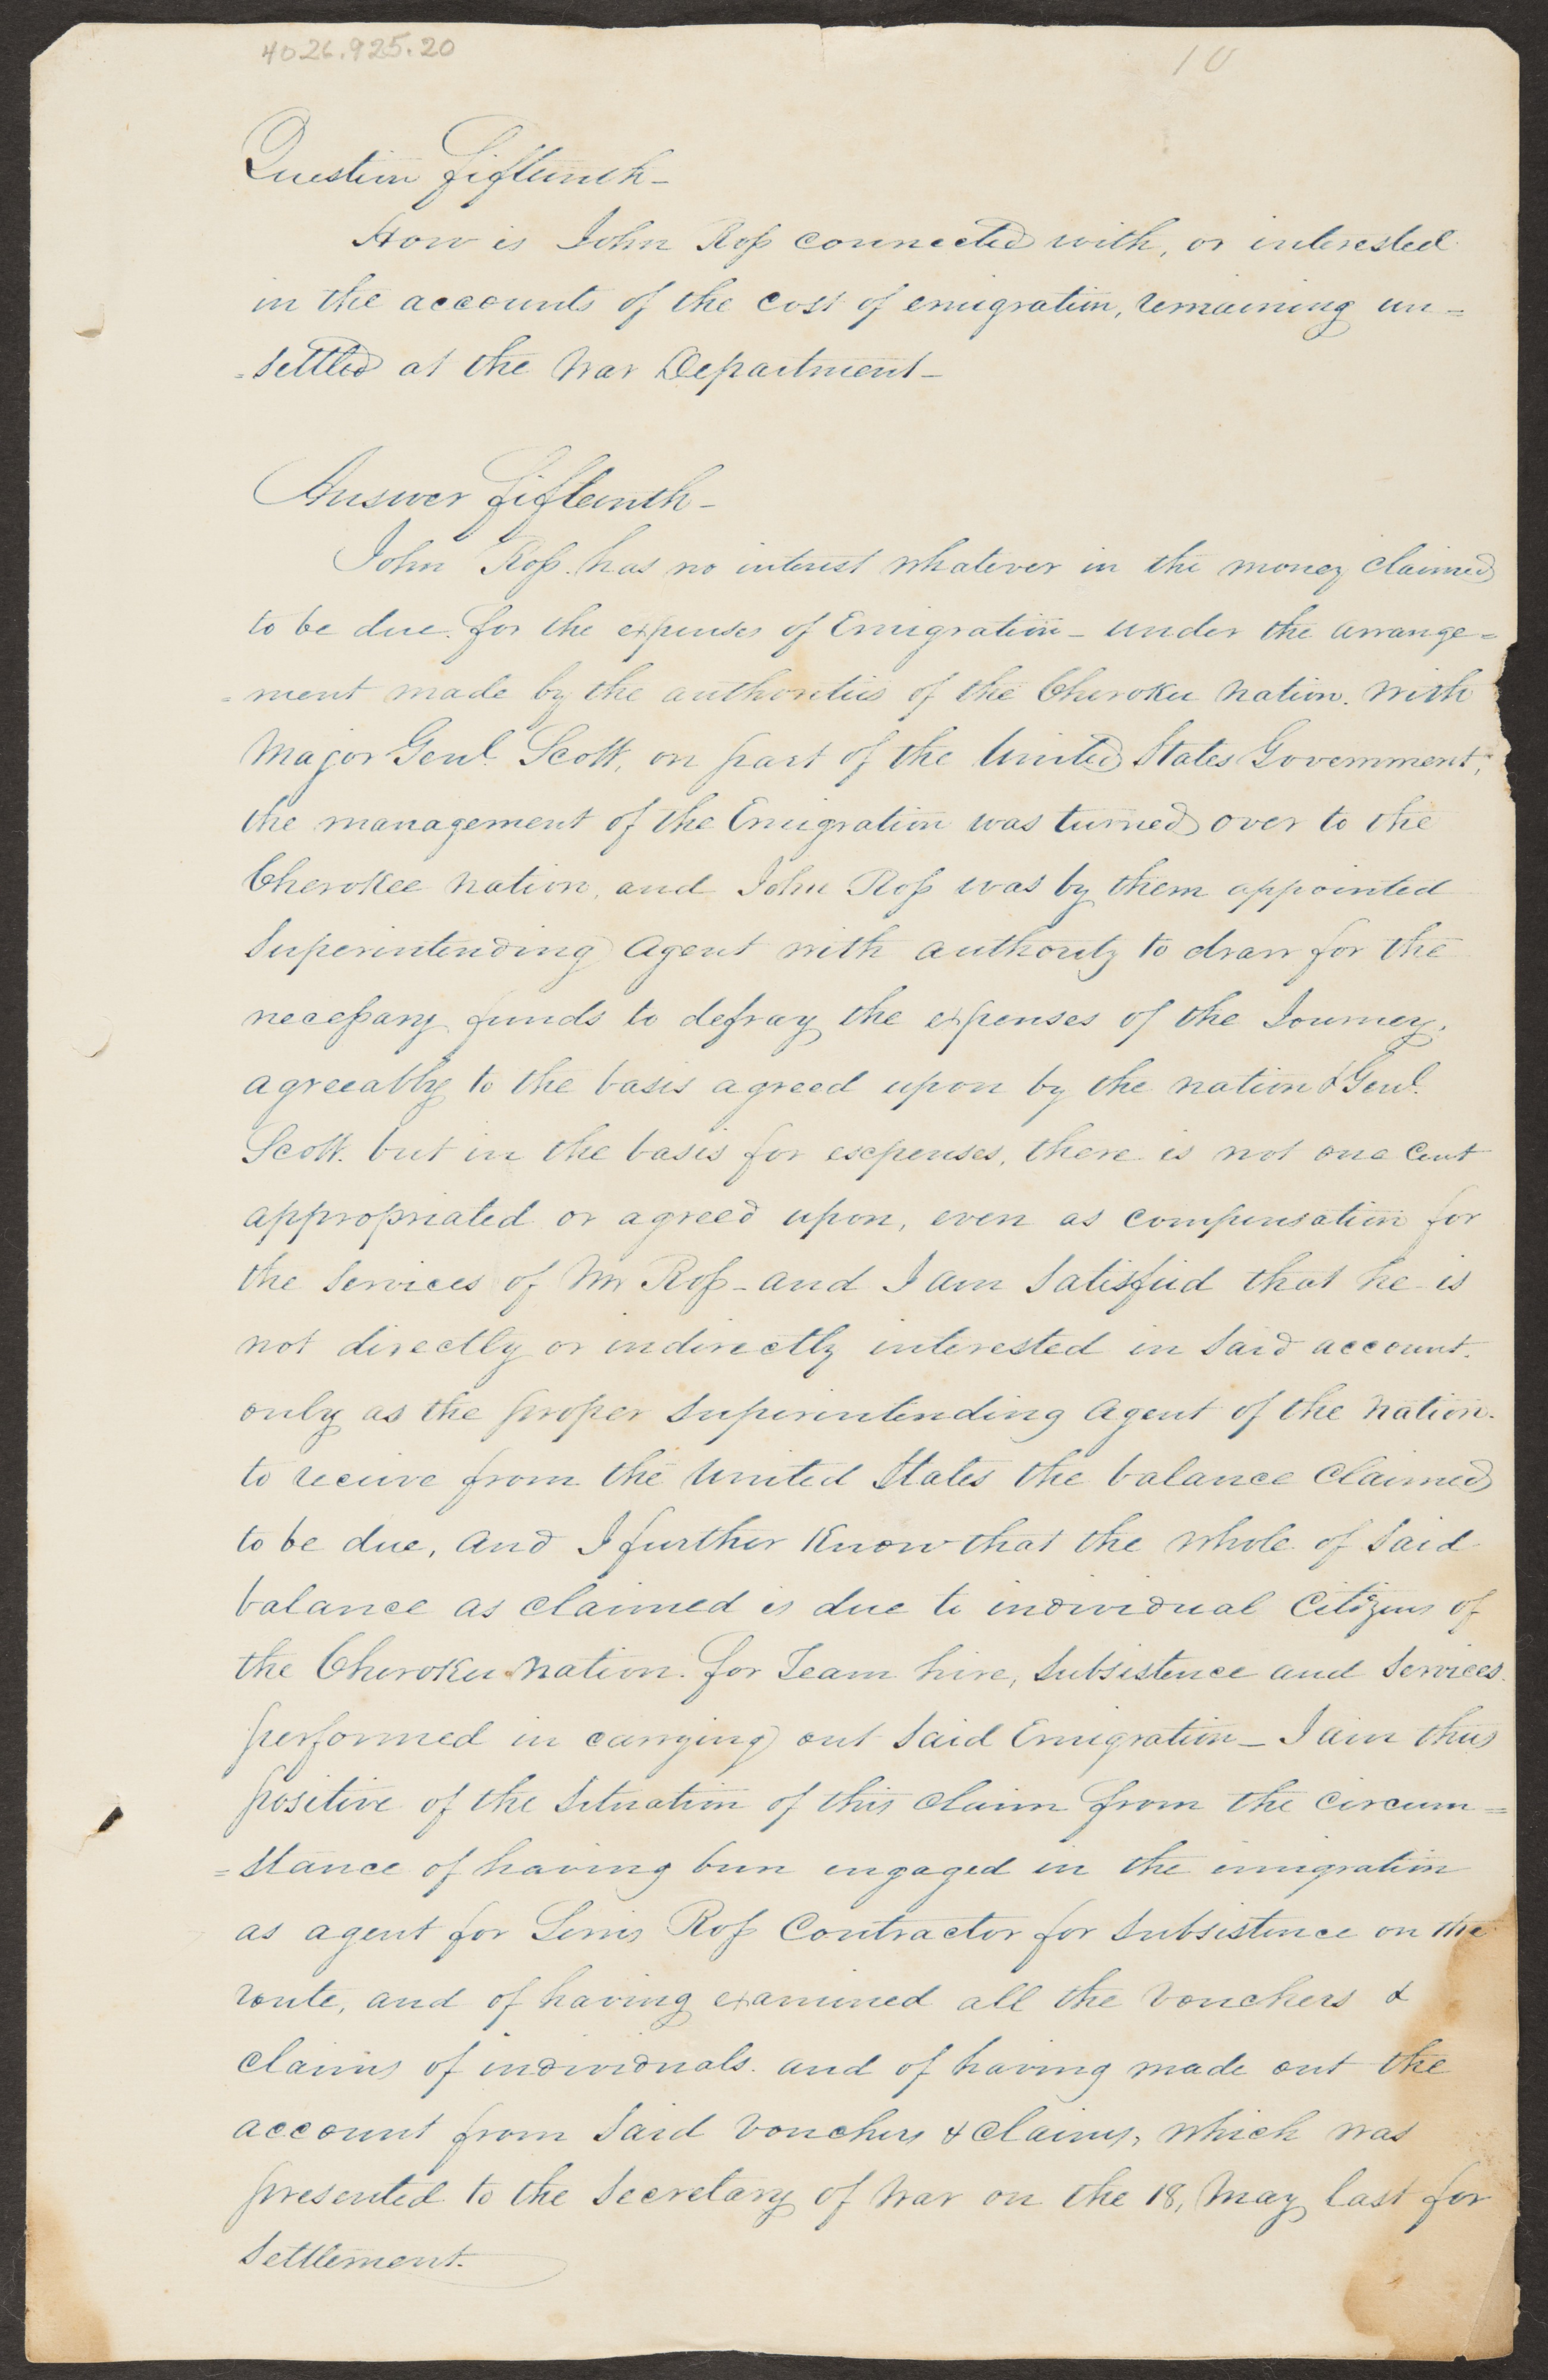 4026.925.20
10
Question fifteenth-
How is John Ross connected with, or interested
in the accounts of the cost of emigration, remaining un=
=settled at the War Department-
Answer fifteenth-
John Ross has no interest whatever in the money claimed
to be due for the expenses of Emigration - under the arrange=
=ment made by the authorities of the Cherokee Nation. With
Major Genl. Scott, on part of the United States Government,
the management of the Emigration was turned over to the
Cherokee Nation, and John Ross was by them appointed
Superintending Agent with authority to draw for the
necessary funds to defray the expenses of the Journey,
agreeably to the basis agreed upon by the nation & Genl.
Scott. but in the basis for expenses, there is not one Cent
appropriated or agreed upon, even as compensation for
the Services of Mr Ross - and I am Satisfied that he is
not directly or indirectly interested in Said account.
only as the proper Superintending Agent of the Nation.
to receive from the United States the balance Claimed
to be due, and I further Know that the whole of Said
balance as claimed is due to individual Citizens of
the Cherokee Nation. for Team hire, Subsistence and Services
performed in carrying out Said Emigration - I am thus
positive of the Situation of this claim from the circum=
=stance of having been engaged in the emigration
as agent for Lewis Ross Contractor for Subsistence on the
route, and of having examined all the Vouchers &
claims of individuals. and of having made out the
account from Said Vouchers & Claims, which was
presented to the Secretary of War on the 18, May last for
Settlement.